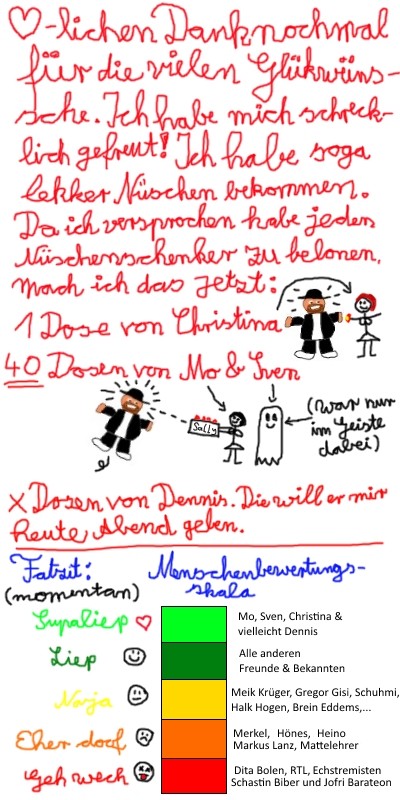 ♡-lichen Dank nochmal
für die vielen Glükwüns-
sche. Ich habe mich schreck-
lich gefreut! Ich habe soga
lekker Nüschen bekommen.
Da ich versprochen habe jeden
Nüschenschenker zu belonen,
mach ich das jetzt:
1 Dose von Christina
40 Dosen von Mo & Sven
Sally
(war nur
im Geiste
dabei)
x Dosen von Dennis. Die will er mir
heute Abend geben.
Fatzit:
(momentan)
Menschenbewertungs-
skala
Supaliep ♡
Mo, Sven, Christina &
vielleicht Dennis
Liep
Alle anderen
Freunde & Bekannten
Narja
Meik Krüger, Gregor Gisi, Schuhmi,
Halk Hogen, Brein Eddems,...
Eher doof
Merkel, Hönes, Heino
Markus Lanz, Mattelehrer
Geh wech
Dita Bolen, RTL, Echstremisten
Schastin Biber und Jofri Barateon